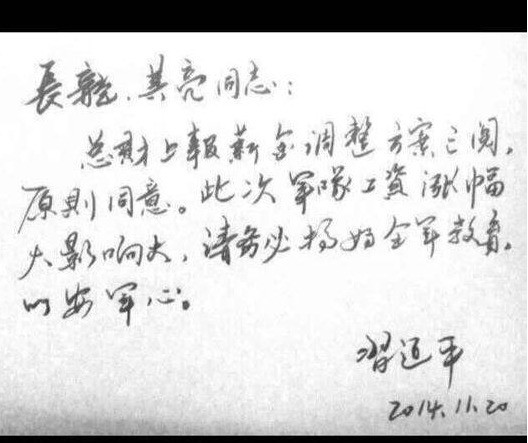 長龍、其亮同志：
总财上報薪金调整方案已阅，
原則同意。此次軍隊工資涨幅
大影响大，请务必搞好全军教育，
以安军心。
習近平
2014.11.20